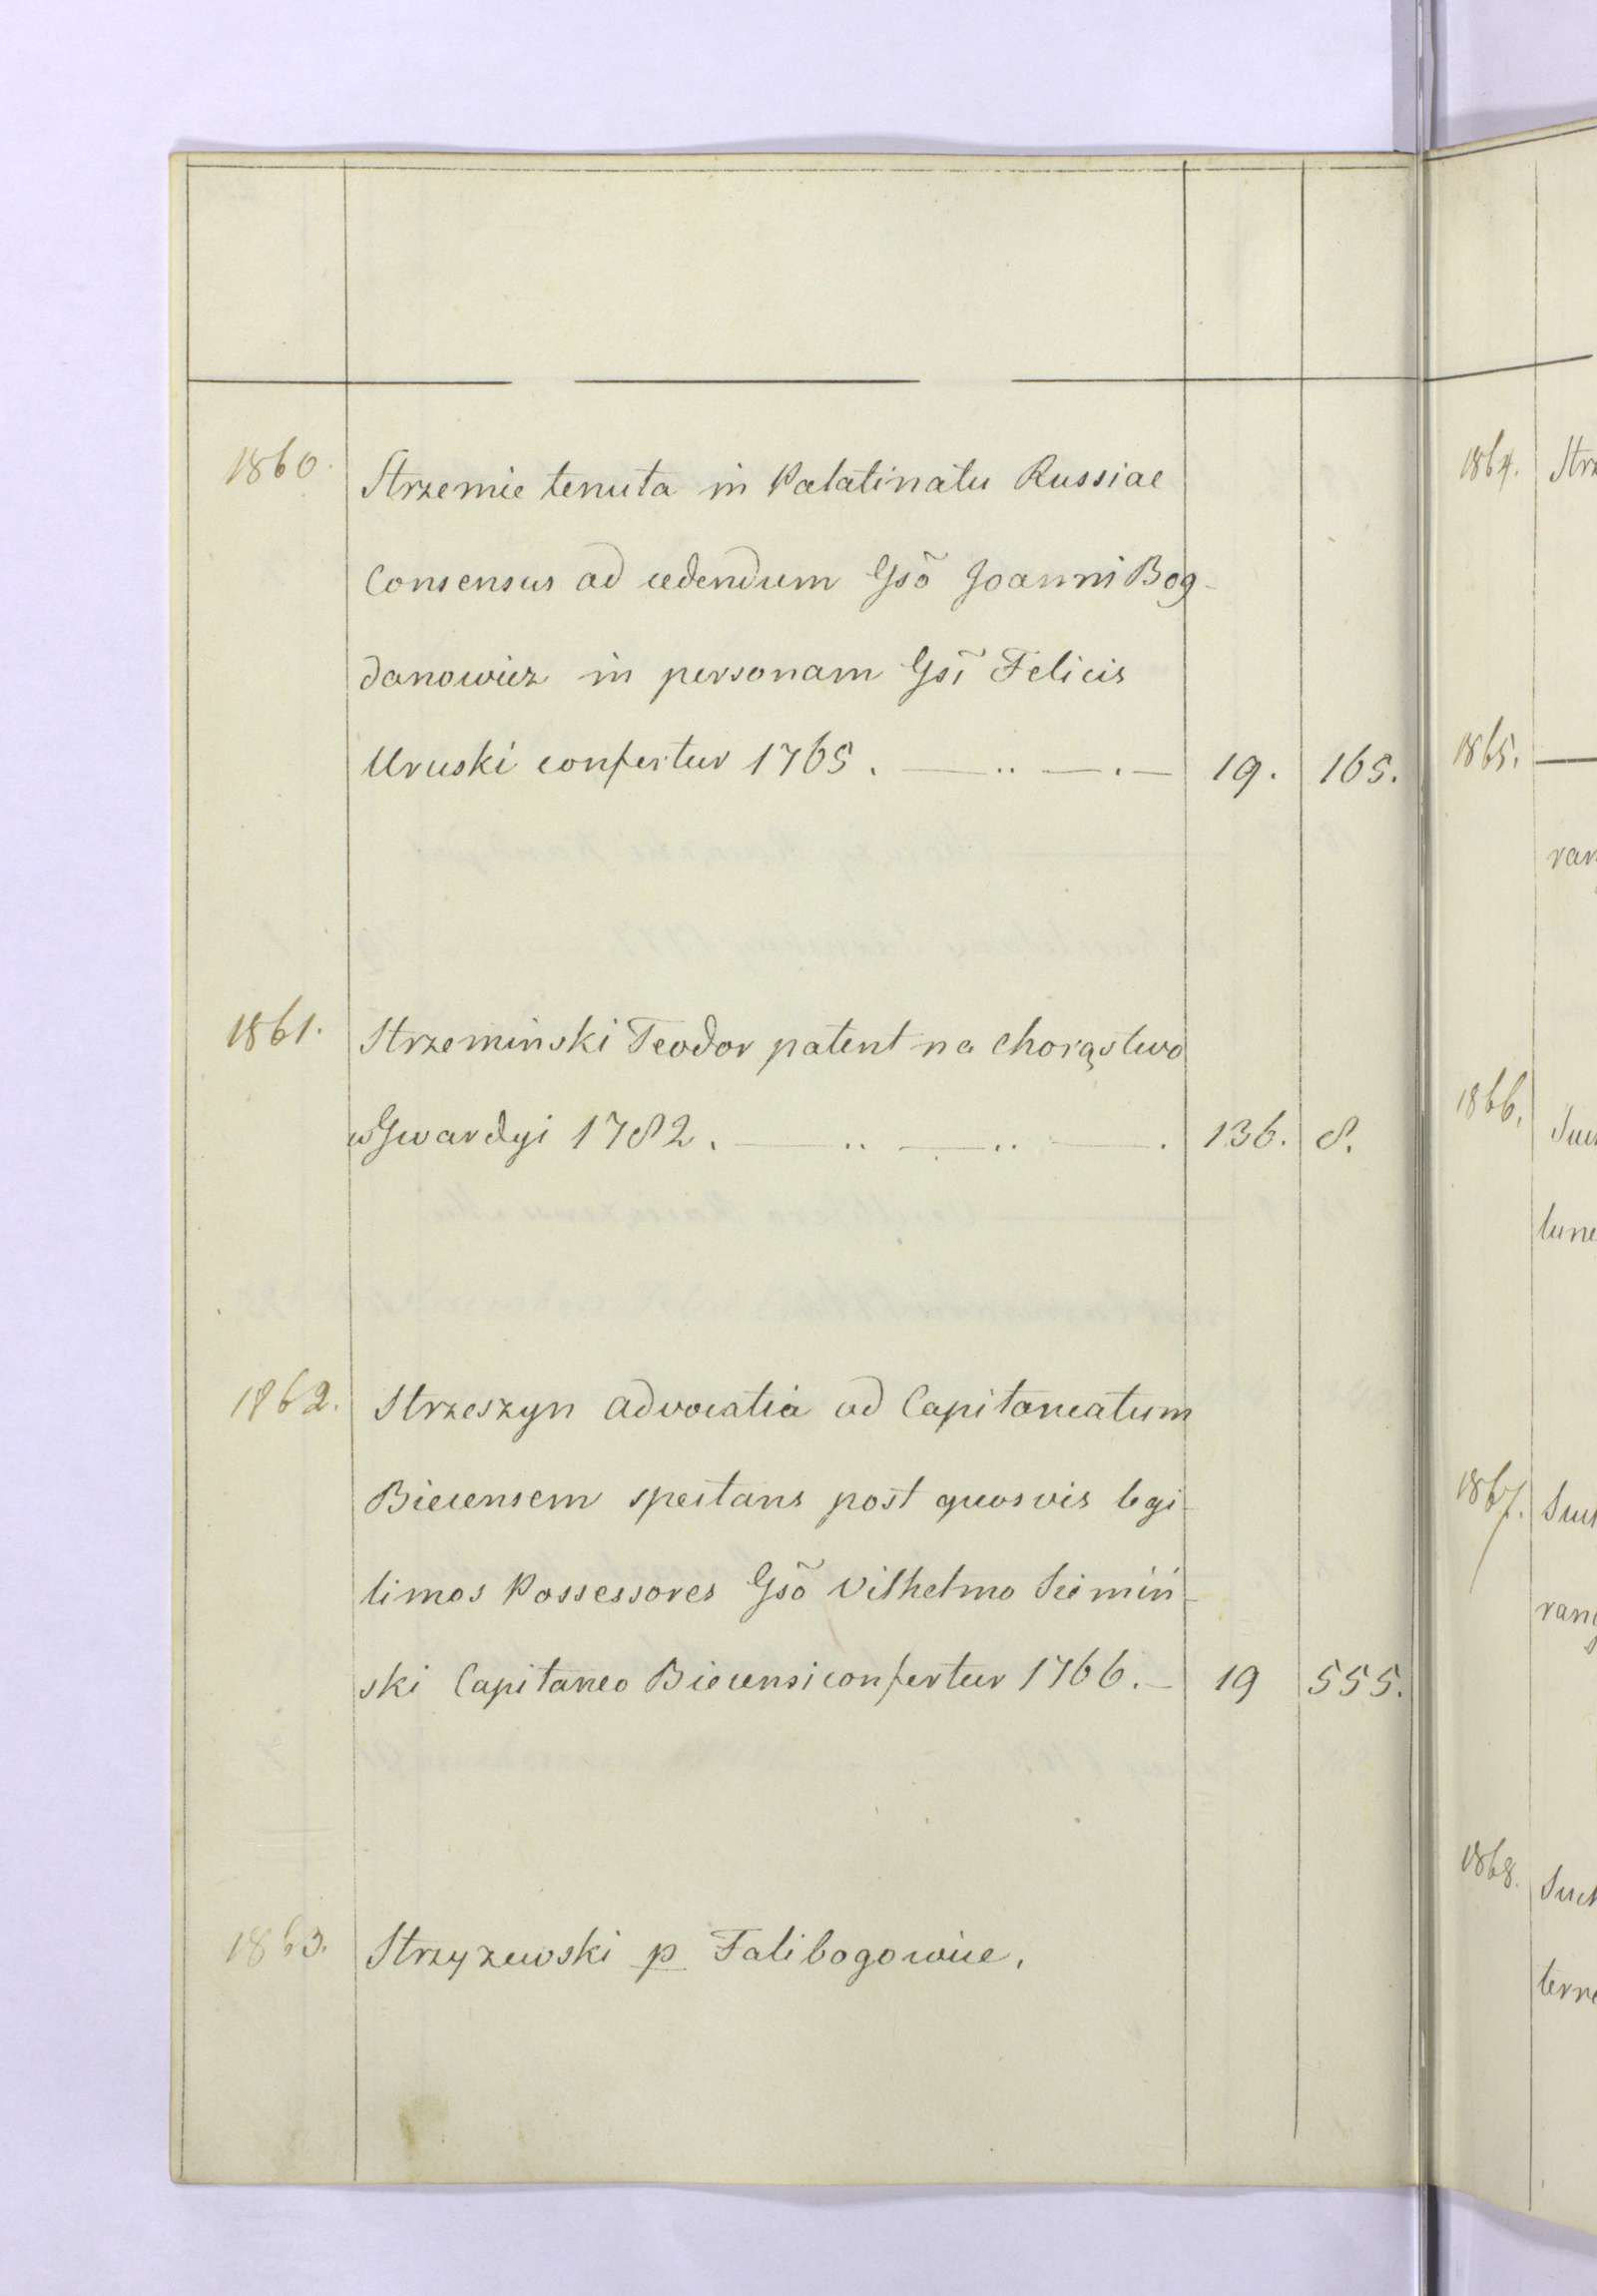 1860. Strzemie tenuta in Palatinatu Russiae
Consensus ad cedendum Gsõ Joanni Bog-
danowicz in personam Gsĩ Felicis
Uruski confertur 1765. 19. 165.
1861. Strzeminski Teodor patent na chorąstwo
w Gwardyi 1782. 136. 8.
1862. Strzeszyn advocatia ad Capitaneatum
Biecensem spectans post quosvis legi-
timos Possessores Gsõ Vilhelmo Siemiń-
ski Capitaneo Biecensi confertur 1766. 19 555.
1863. Strzyzewski p Falibogowice.
1864. Strz
1865.
ran
1866.
tune
1867. Such
rang
1868. Such
terne